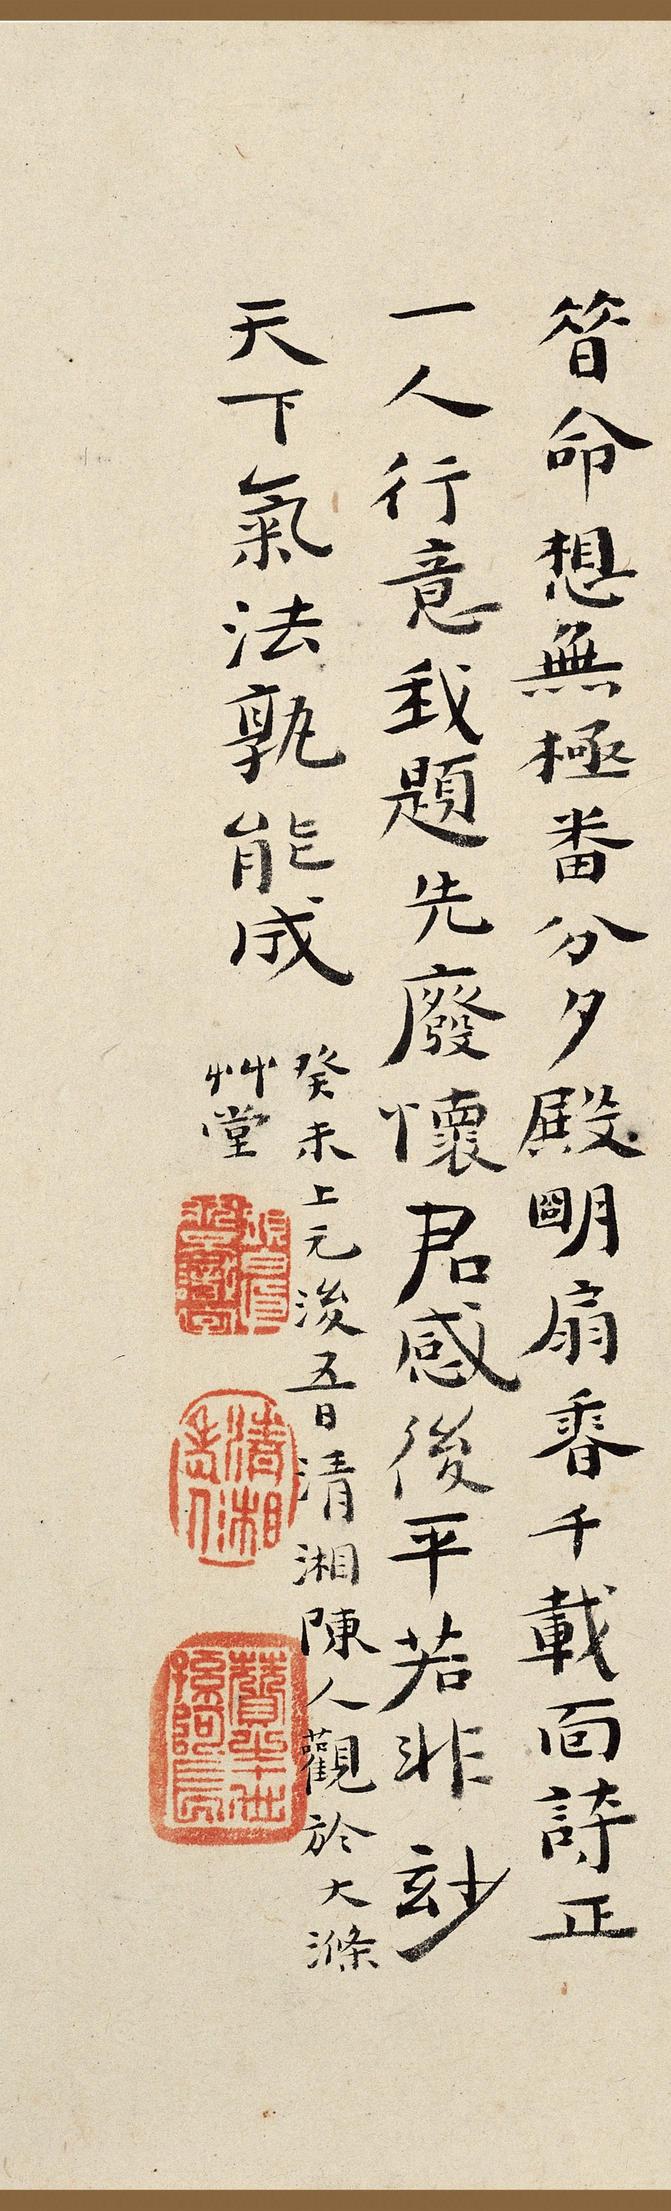 答命想無極番分夕殿明扇香千載面詩正
一人行意我題先廢懷君感後平若非玅
天下氣法孰能成
癸未上元後五日清湘陳人觀於大滌
艸堂
清湘老人
贊之十世孫阿長